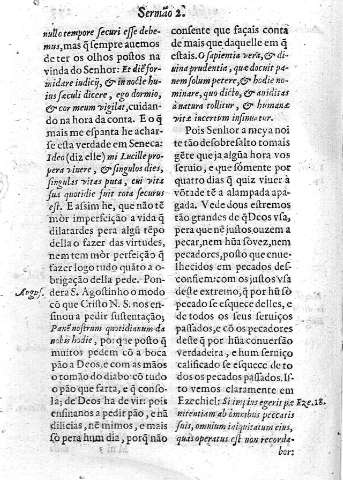 Sermão 2.
nullo tempore securi esse debe-
mus, mas q̃ sempre auemos
de ter os olhos postos na
vinda do Senhor: Et diē for-
midare iudicij, & in nocte hu-
ius sæculi dicere, ego dormio,
& cor meum vigilat, cuidan-
do na hora da conta. E o q̃
mais me espanta he achar-
se esta verdade em Seneca:
Ideo (diz elle) mi Lucille pro-
pera viuere, & singulos dies,
singulas vitas puta, cui vita
sua quotidie fuit tota securus
est. E assi he, que não tẽ
mòr imperfeição a vida q̃
dilatardes pera algũ tẽpo
della o fazer das virtudes,
nem tem mòr perfeição q̃
fazer logo tudo quãto a o-
brigação della pede. Pon-
dera S. Agostinho o modo
Augus.
cõ que Cristo N. S. nos en-
sinou a pedir sustentação,
Panē nostrum quotidianum da
nobis hodie, põ: que posto q̃
muitos pedem cõ a boca
pão a Deos, e com as mãos
o tomão do diabo cõ tudo
o pão que farta, e q̃ conso-
la; de Deos ha de vir: pois
ensinanos a pedir pão, e nã
dilicias, nẽ mimos, e mais
sò pera hum dia, porq̃ não
consente que façais conta
de mais que daquelle em q̃
estais. O sapientia vera, & di-
uina prudentia, quæ docuit pa-
nem solum petere, & hodie no-
minare, quo dicto, & auiditas
à natura tollitur, & humanæ
vitæ incertum insinuatur.
Pois Senhor a meya noi
te tão de sobresalto tomais
gēte que ja algũa hora vos
seruio, e que sómente por
quatro dias q̃ quiz viuer à
võtade tē a alampada apa-
gada. Vede dous estremos
tão grandes de q̃ Deos vsa,
pera que nē justos ouzem a
pecar, nem hũa só vez, nem
pecadores, posto que enue-
lhecidos em pecados des-
confiem: com os justos vsa
deste estremo, q̃ por hũ só
pecado se esquece delles, e
de todos os seus seruiços
passados, e cõ os pecadores
deste q̃ por hũa conuersão
verdadeira, e hum seruiço
calificado se esquece de to-
dos os pecados passados. Is-
to vemos claramente em
Ezechiel: Si impius egerit pæ
Eze. 18.
nitentiam ab omnibus peccatis
suis, omnium iniquitatum eius,
quas operatus est non recorda-
bor: